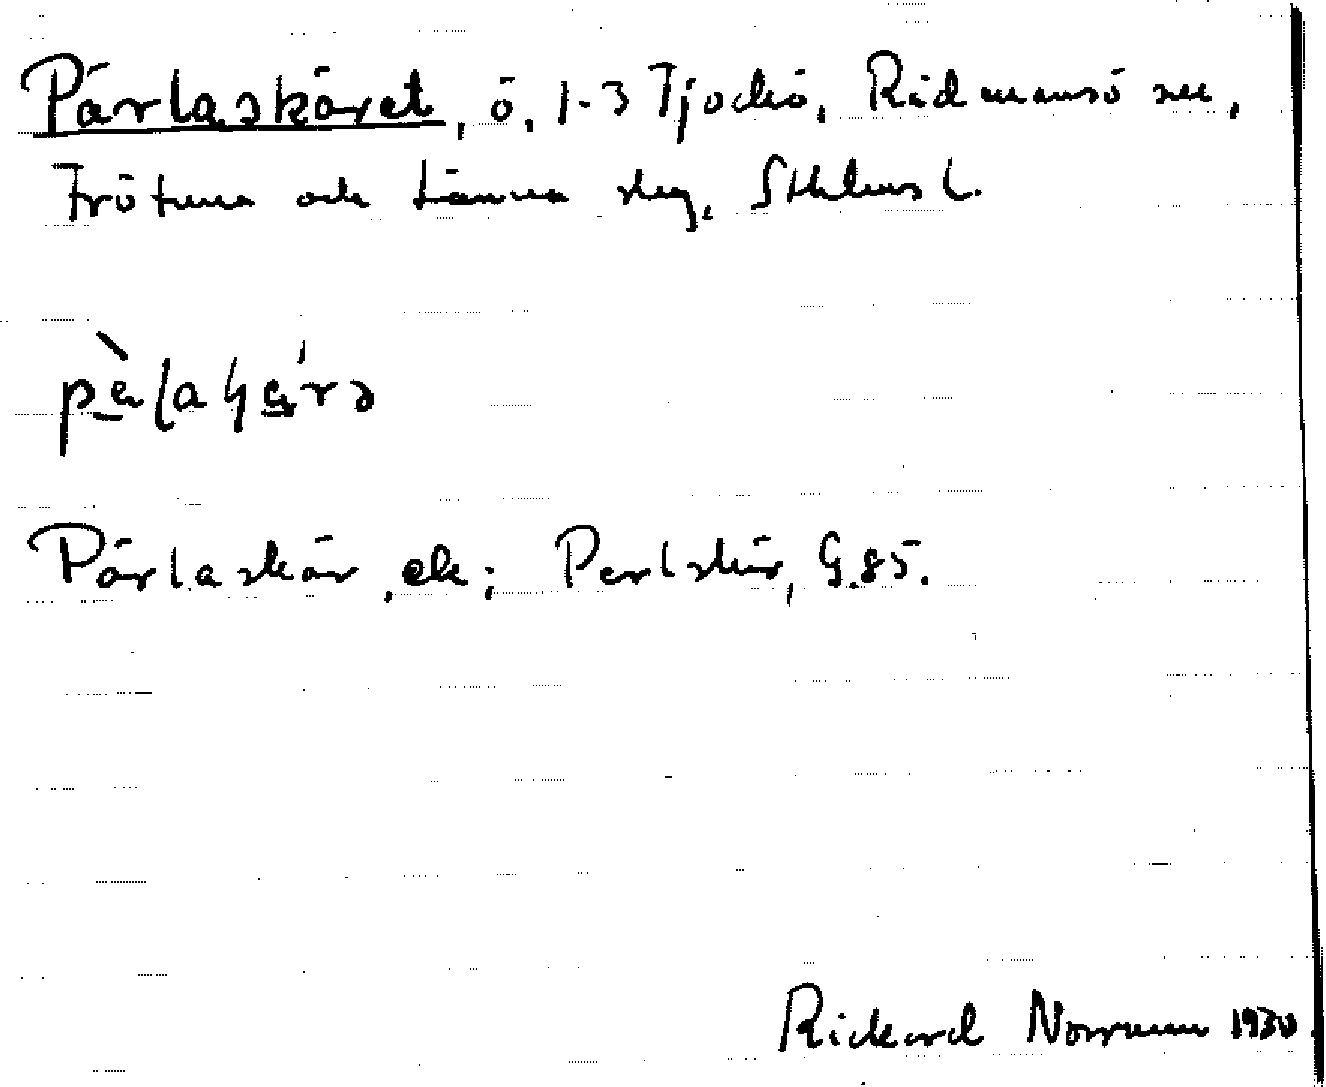 Pärlaskäret, ö, 1-3 Tjockö, Rådmansö sn,
Frötuna och Länna slg, Sthlms l.
Pärlaskär, ek; Perlskär, G.85.
Rickard Norrman 1930.